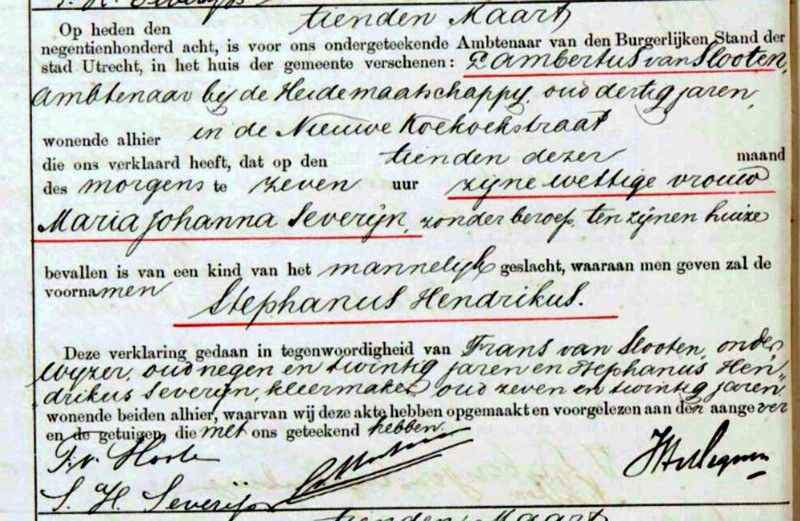 Op heden den tienden Maart
negentienhonderd acht, is voor ons ondergeteekende Ambtenaar van den Burgerlijken Stand der
stad Utrecht, in het huis der gemeente verschenen: Lambertus van Slooten,
ambtenaar bij de Heidemaatschappij, oud dertig jaren,
wonende alhier in de Nieuwe Koekoekstraat
die ons verklaard heeft, dat op den tienden dezer maand
des morgens te zeven uur zijne wettige vrouw
Maria Johanna Severijn, zonder beroep, ten zijnen huize
bevallen is van een kind van het mannelijk geslacht, waaraan men geven zal de
voornamen Stephanus Hendrikus.
Deze verklaring gedaan in tegenwoordigheid van Frans van Slooten, onder-
wijzer, oud negen en twintig jaren en Stephanus Hen-
drikus Severijn, kleermaker, oud zeven en twintig jaren,
wonende beiden alhier, waarvan wij deze akte hebben opgemaakt en voorgelezen aan den aangever
en de getuigen, die met ons geteekend hebben.
S. H. Severijn
tienden Maart